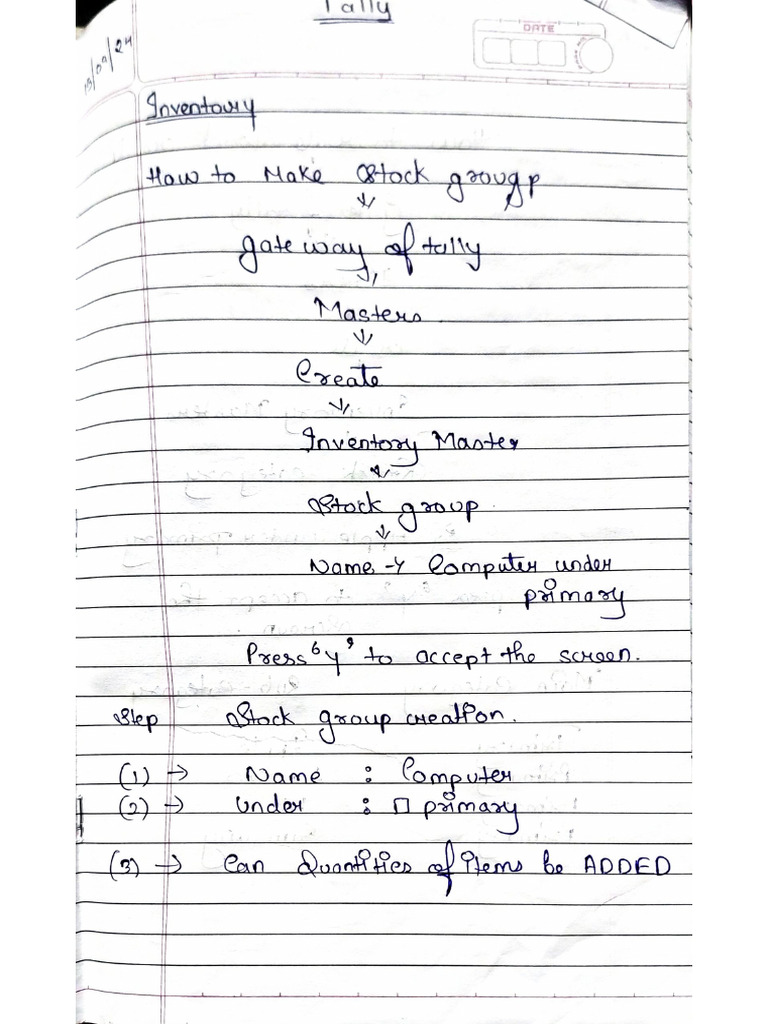 Tally
DATE
13/09/24
Inventory
How to Make Stock group
gateway of tally
Masters
Create
Inventory Master
Stock group
Name → Computer under
primary
Press 'y' to accept the screen.
Step Stock group creation.
(1) → Name : Computer
(2) → Under : □ primary
(3) → Can Quantities of items be ADDED